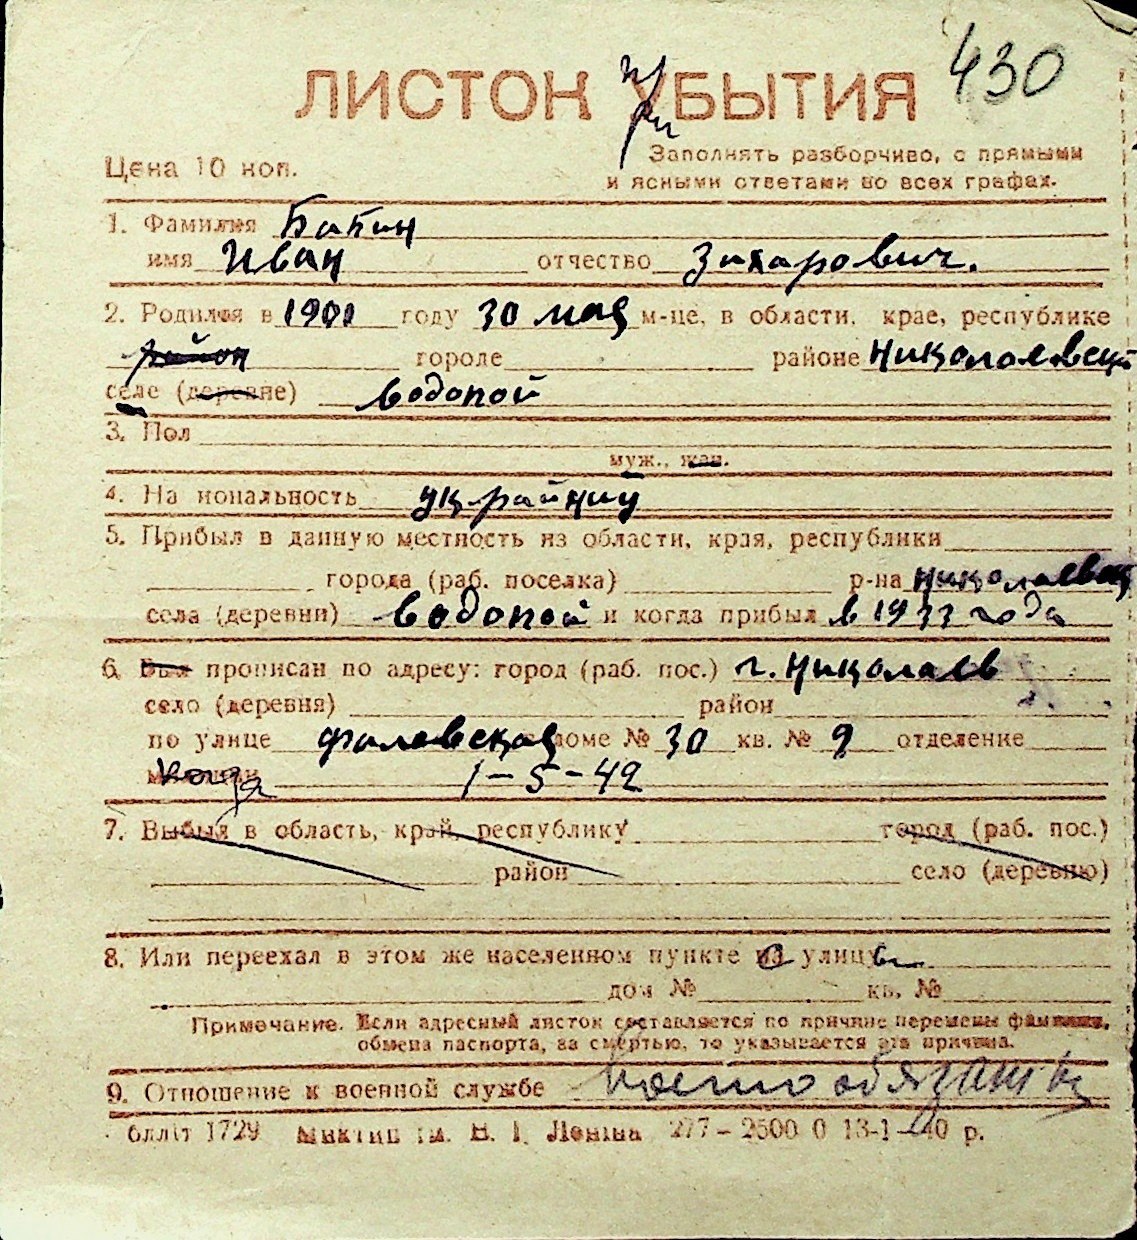 430
ЛИСТОК При УБЫТИЯ
Цена 10 коп.
Заполнять разборчиво, с прямыми
и ясными ответами во всех графах.
1. Фамилия Бабин
имя Иван отчество Захарович.
2. Родился в 1901 году 30 мая м-це, в области, крае, республике
район городе районе Николаевский
селе (деревне) Водопой
3. Пол
муж., жен.
4. На иональность украйниц
5. Прибыл в данную местность из области, края, республики
города (раб. поселка) р-на Николаевск
села (деревни) Водопой и когда прибыл в 1933 года
6. Был прописан по адресу: город (раб. пос.) г. Николаев
село (деревня) район
по улице фалеевская доме № 30 кв. № 9 отделение
когда 1-5-42
7. Выбыл в область, край, республику город (раб. пос.)
район село (деревню)
8. Или переехал в этом же населенном пункте с улицы
дом № кв. №
Примечание. Если адресный листок составляется по причине перемены фамилии,
обмена паспорта, за смертью, то указывается эта причина.
9. Отношение к военной службе военнообязаный
блліт 1729 Миколаїв ім. В. І. Леніна 277-2500 0 13-1-40 р.